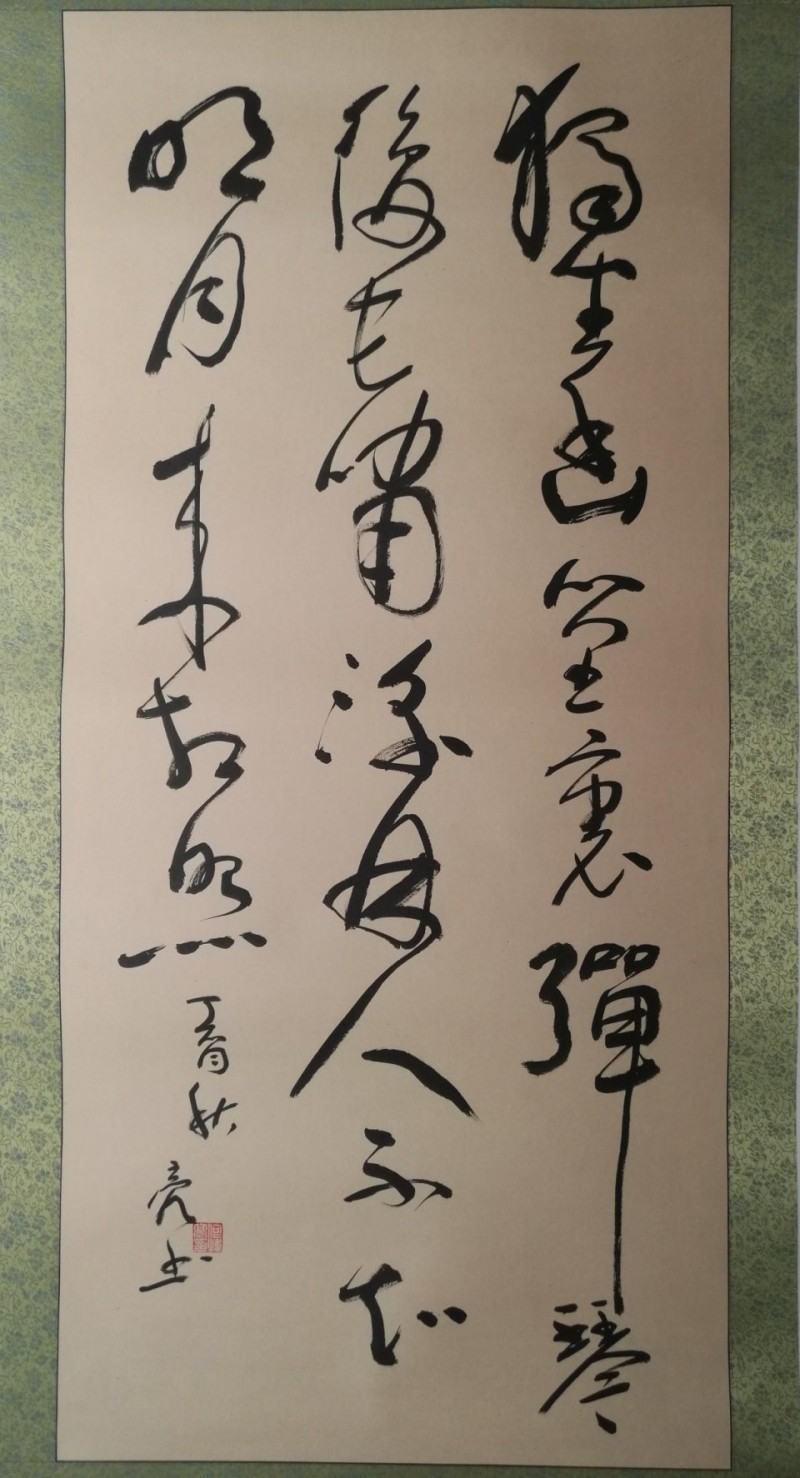 獨坐幽篁裏彈琴
復長嘯深林人不知
明月來相照
丁酉秋
亮書